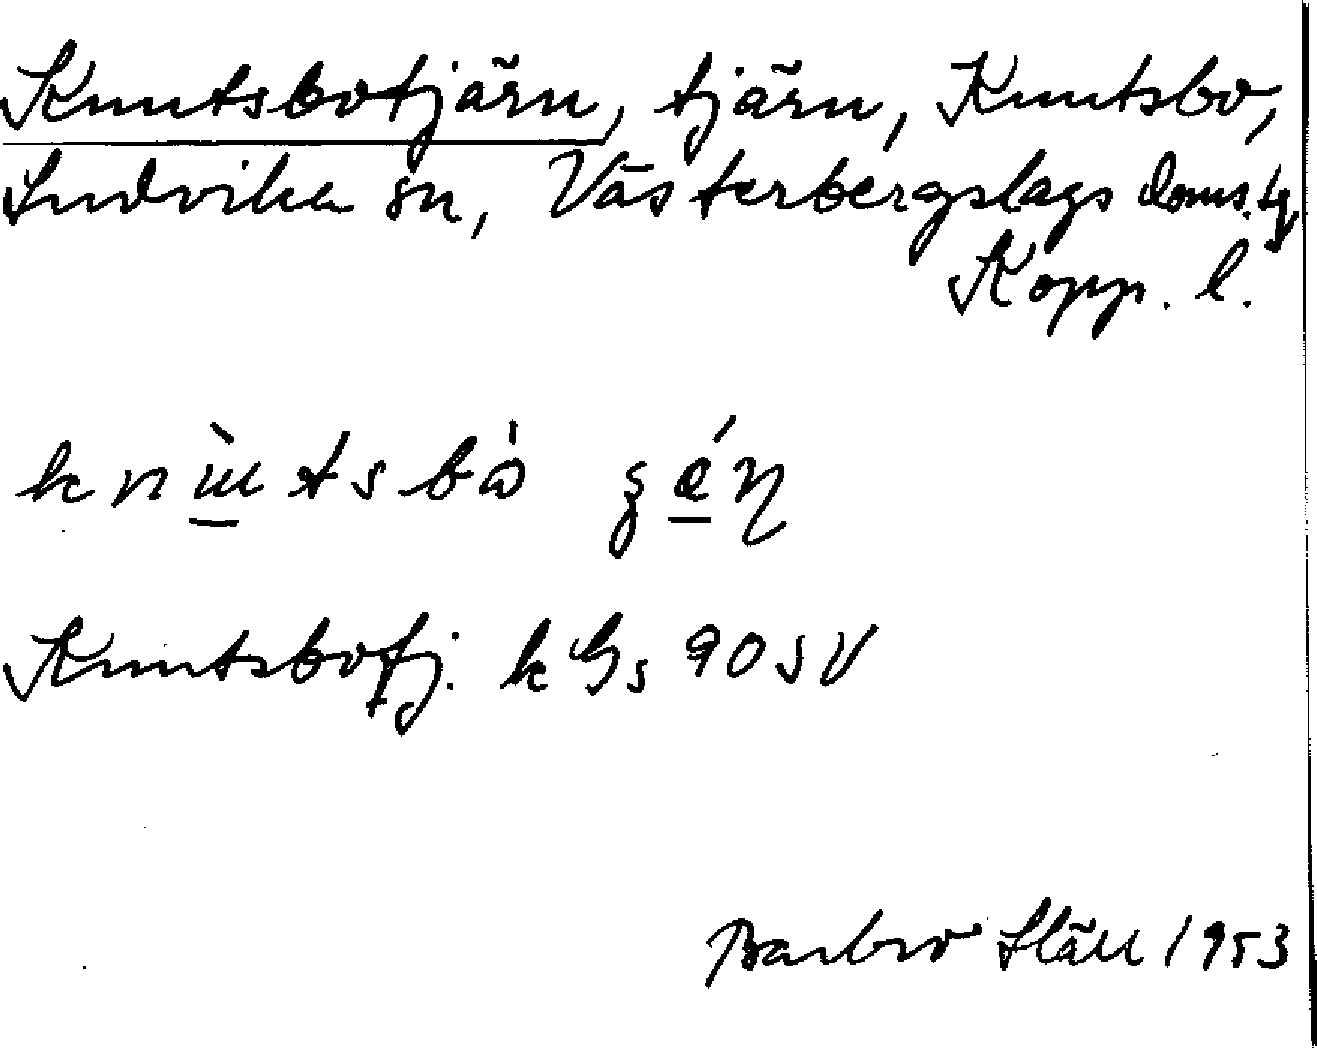 Knutsbotjärn, tjärn, Knutsbo,
Ludvika sn, Västerbergslags doms.
Kopp. l.
Knutsbotj. k Gs 90 SV
Barbro 1953